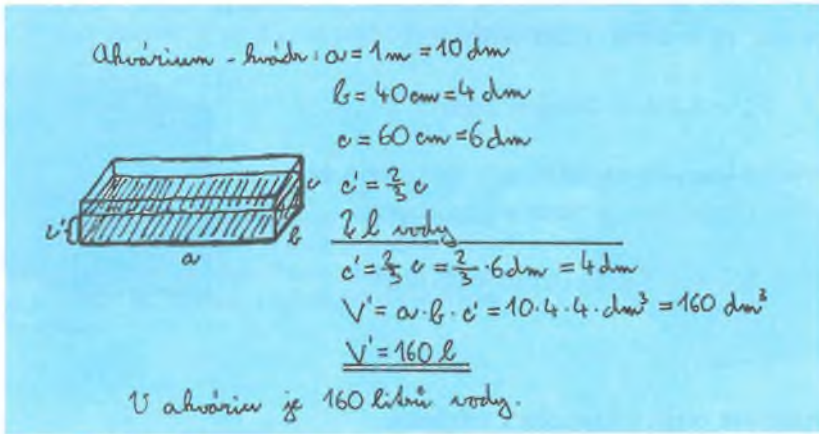 Akvárium - kvádr: a = 1 m = 10 dm
b = 40 cm = 4 dm
c = 60 cm = 6 dm
c' = 2/3 c
? l vody
c' = 2/3 c = 2/3 · 6 dm = 4 dm
V' = a · b · c' = 10 · 4 · 4 · dm³ = 160 dm³
V' = 160 l
c'
a
b
c
V akváriu je 160 litrů vody.